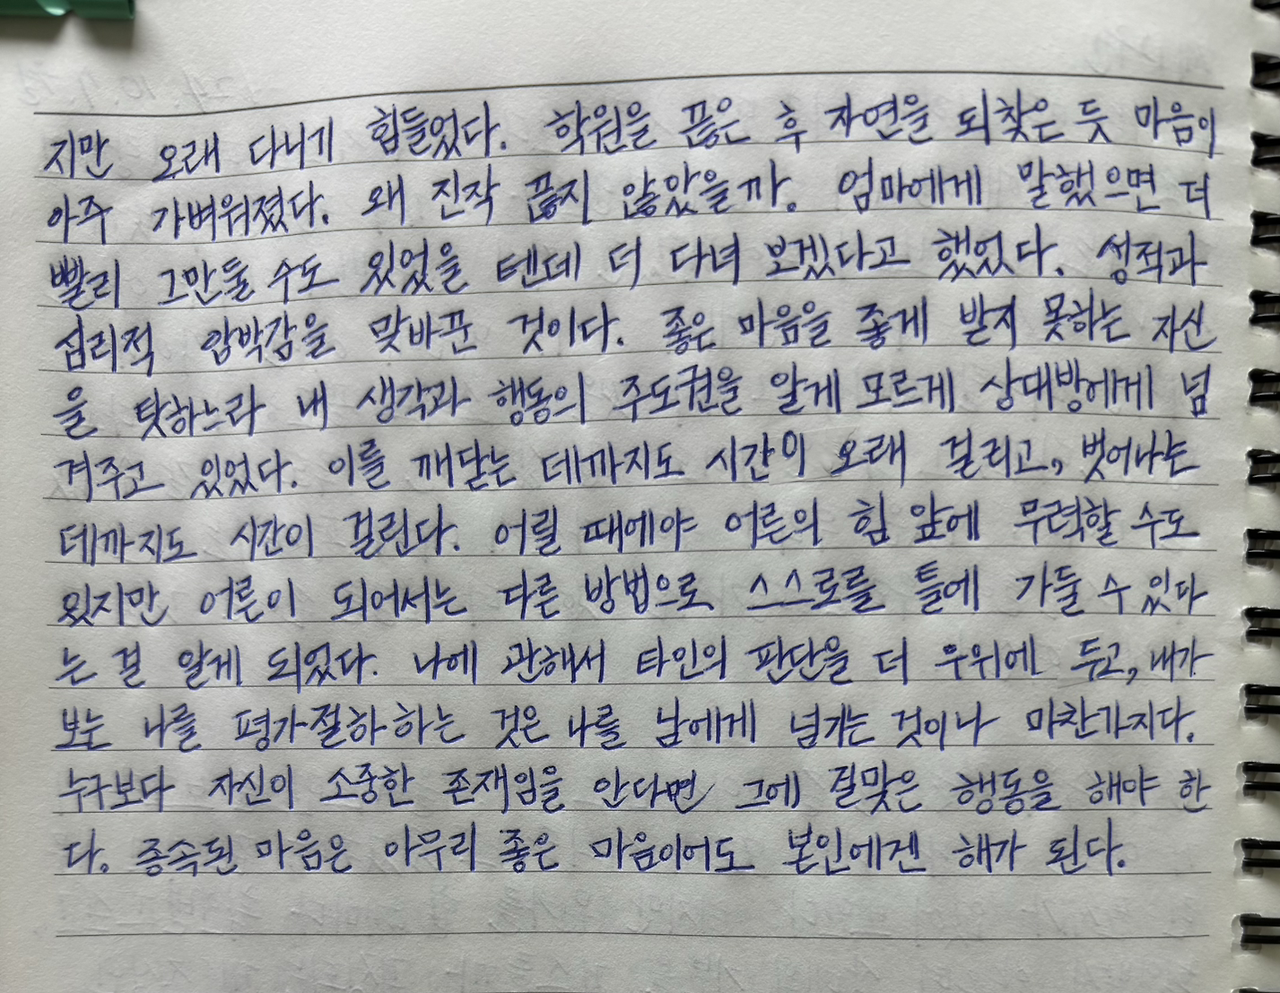 지만 오래 다니기 힘들었다. 학원을 끊은 후 자연을 되찾은 듯 마음이
아주 가벼워졌다. 왜 진작 끊지 않았을까. 엄마에게 말했으면 더
빨리 그만둘 수도 있었을 텐데 더 다녀 보겠다고 했었다. 성적과
심리적 압박감을 맞바꾼 것이다. 좋은 마음을 좋게 받지 못하는 자신
을 탓하느라 내 생각과 행동의 주도권을 알게 모르게 상대방에게 넘
겨주고 있었다. 이를 깨닫는 데까지도 시간이 오래 걸리고, 벗어나는
데까지도 시간이 걸린다. 어릴 때에야 어른의 힘 앞에 무력할 수도
있지만 어른이 되어서는 다른 방법으로 스스로를 틀에 가둘 수 있다
는 걸 알게 되었다. 나에 관해서 타인의 판단을 더 우위에 두고, 내가
보는 나를 평가절하 하는 것은 나를 남에게 넘기는 것이나 마찬가지다.
누구보다 자신이 소중한 존재임을 안다면 그에 걸맞은 행동을 해야 한
다. 종속된 마음은 아무리 좋은 마음이어도 본인에겐 해가 된다.